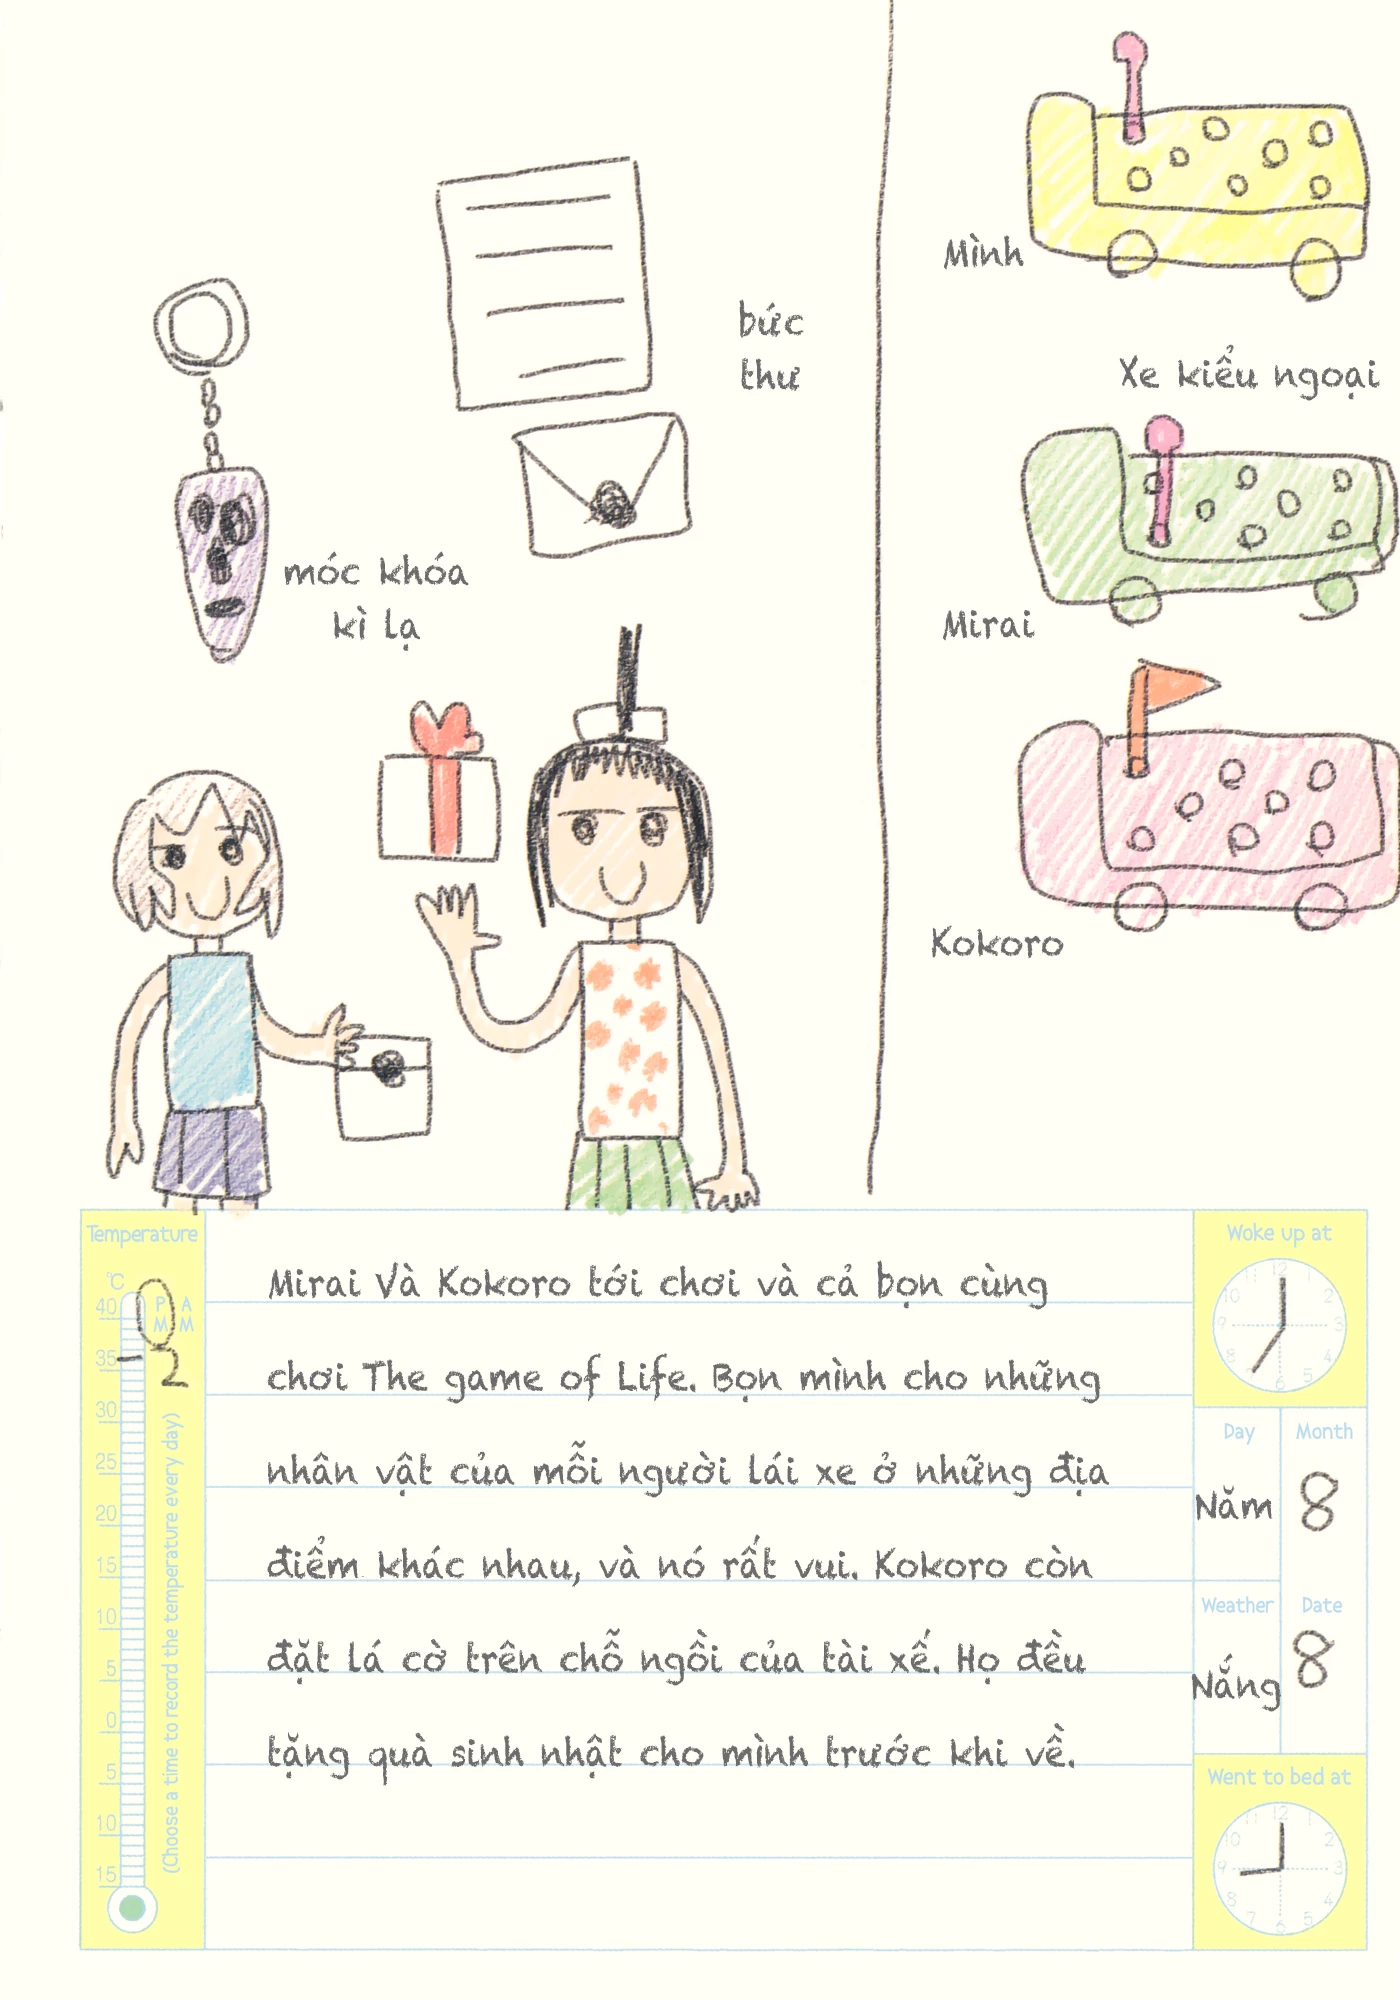 bức
thư
móc khóa
kì lạ
Mình
Xe kiểu ngoại
Mirai
Kokoro
Temperature
°C
40
35
30
25
20
15
10
5
0
5
10
15
PM
AM
2
(Choose a time to record the temperature every day)
Mirai Và Kokoro tới chơi và cả bọn cùng
chơi The game of Life. Bọn mình cho những
nhân vật của mỗi người lái xe ở những địa
điểm khác nhau, và nó rất vui. Kokoro còn
đặt lá cờ trên chỗ ngồi của tài xế. Họ đều
tặng quà sinh nhật cho mình trước khi về.
Woke up at
11 12 1
10 2
9 3
8 4
6
Day Month
Năm 8
Weather Date
Nắng 8
Went to bed at
11 12 1
10 2
9 3
8 4
7 6 5